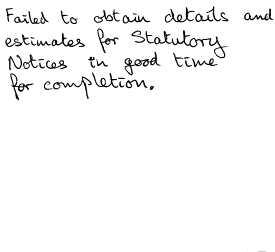 Failed to obtain details and
estimates for Statutory
Notices in good time
for completion.